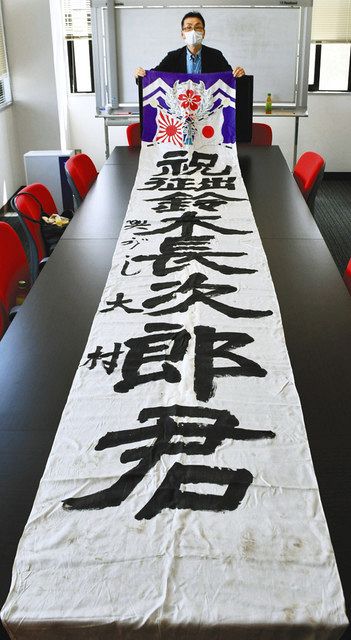 祝
出征
鈴木長次郎君
大村